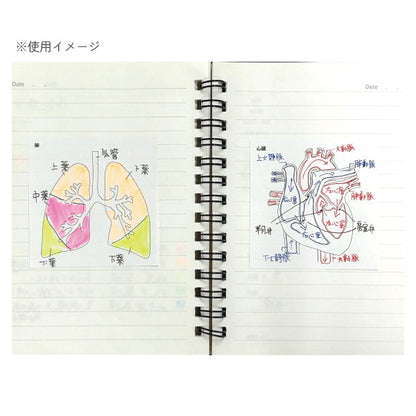 ※使用イメージ
Date . .
肺
気管
上葉
上葉
中葉
下葉
下葉
Date . .
心臓
大動脈
上大静脈
肺動脈
肺静脈
右心房
左心房
右心室
左心室
下大静脈
下大動脈